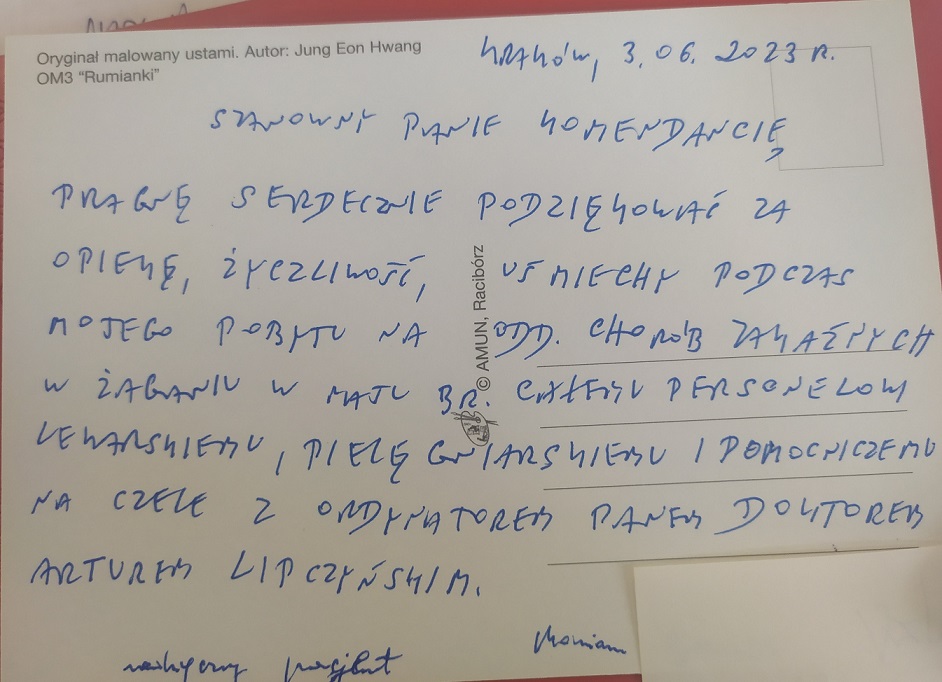 Oryginał malowany ustami. Autor: Jung Eon Hwang
OM3 "Rumianki"
KRAKÓW, 3.06.2023 R.
SZANOWNY PANIE KOMENDANCIE,
PRAGNĘ SERDECZNIE PODZIĘKOWAĆ ZA
OPIEKĘ, ŻYCZLIWOŚĆ, UŚMIECHY PODCZAS
MOJEGO POBYTU NA ODD. CHORÓB ZAKAŹNYCH
W ŻAGANIU W MAJU BR. CAŁEMU PERSONELOWI
LEKARSKIEMU, PIELĘGNIARSKIEMU I POMOCNICZEMU
NA CZELE Z ORDYNATOREM PANEM DOKTOREM
ARTUREM LIPCZYŃSKIM.
© AMUN, Racibórz
pacjent